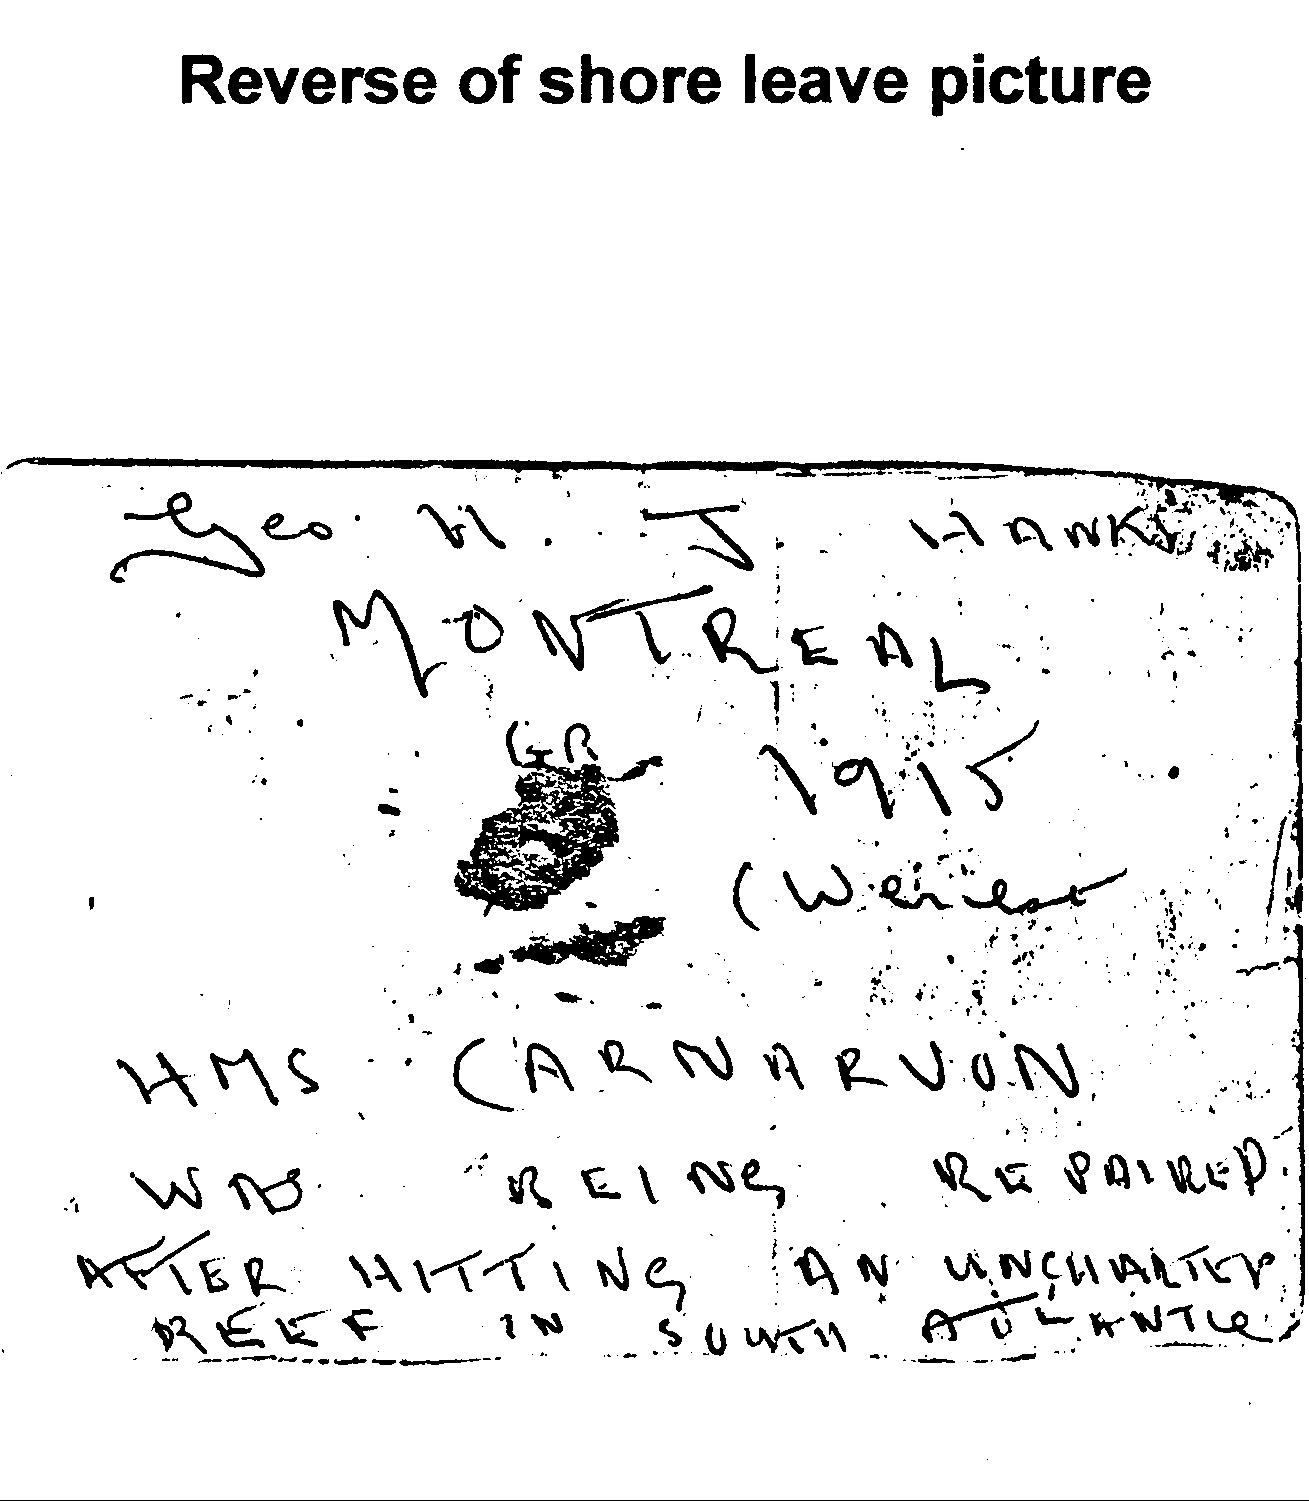 Reverse of shore leave picture
Geo. H. J. HANKS
MONTREAL
GR
1915
(Wenest
HMS CARNARVON
WAS BEING REPAIRED
AFTER HITTING AN UNCHARTED
REEF IN SOUTH ATLANTIC